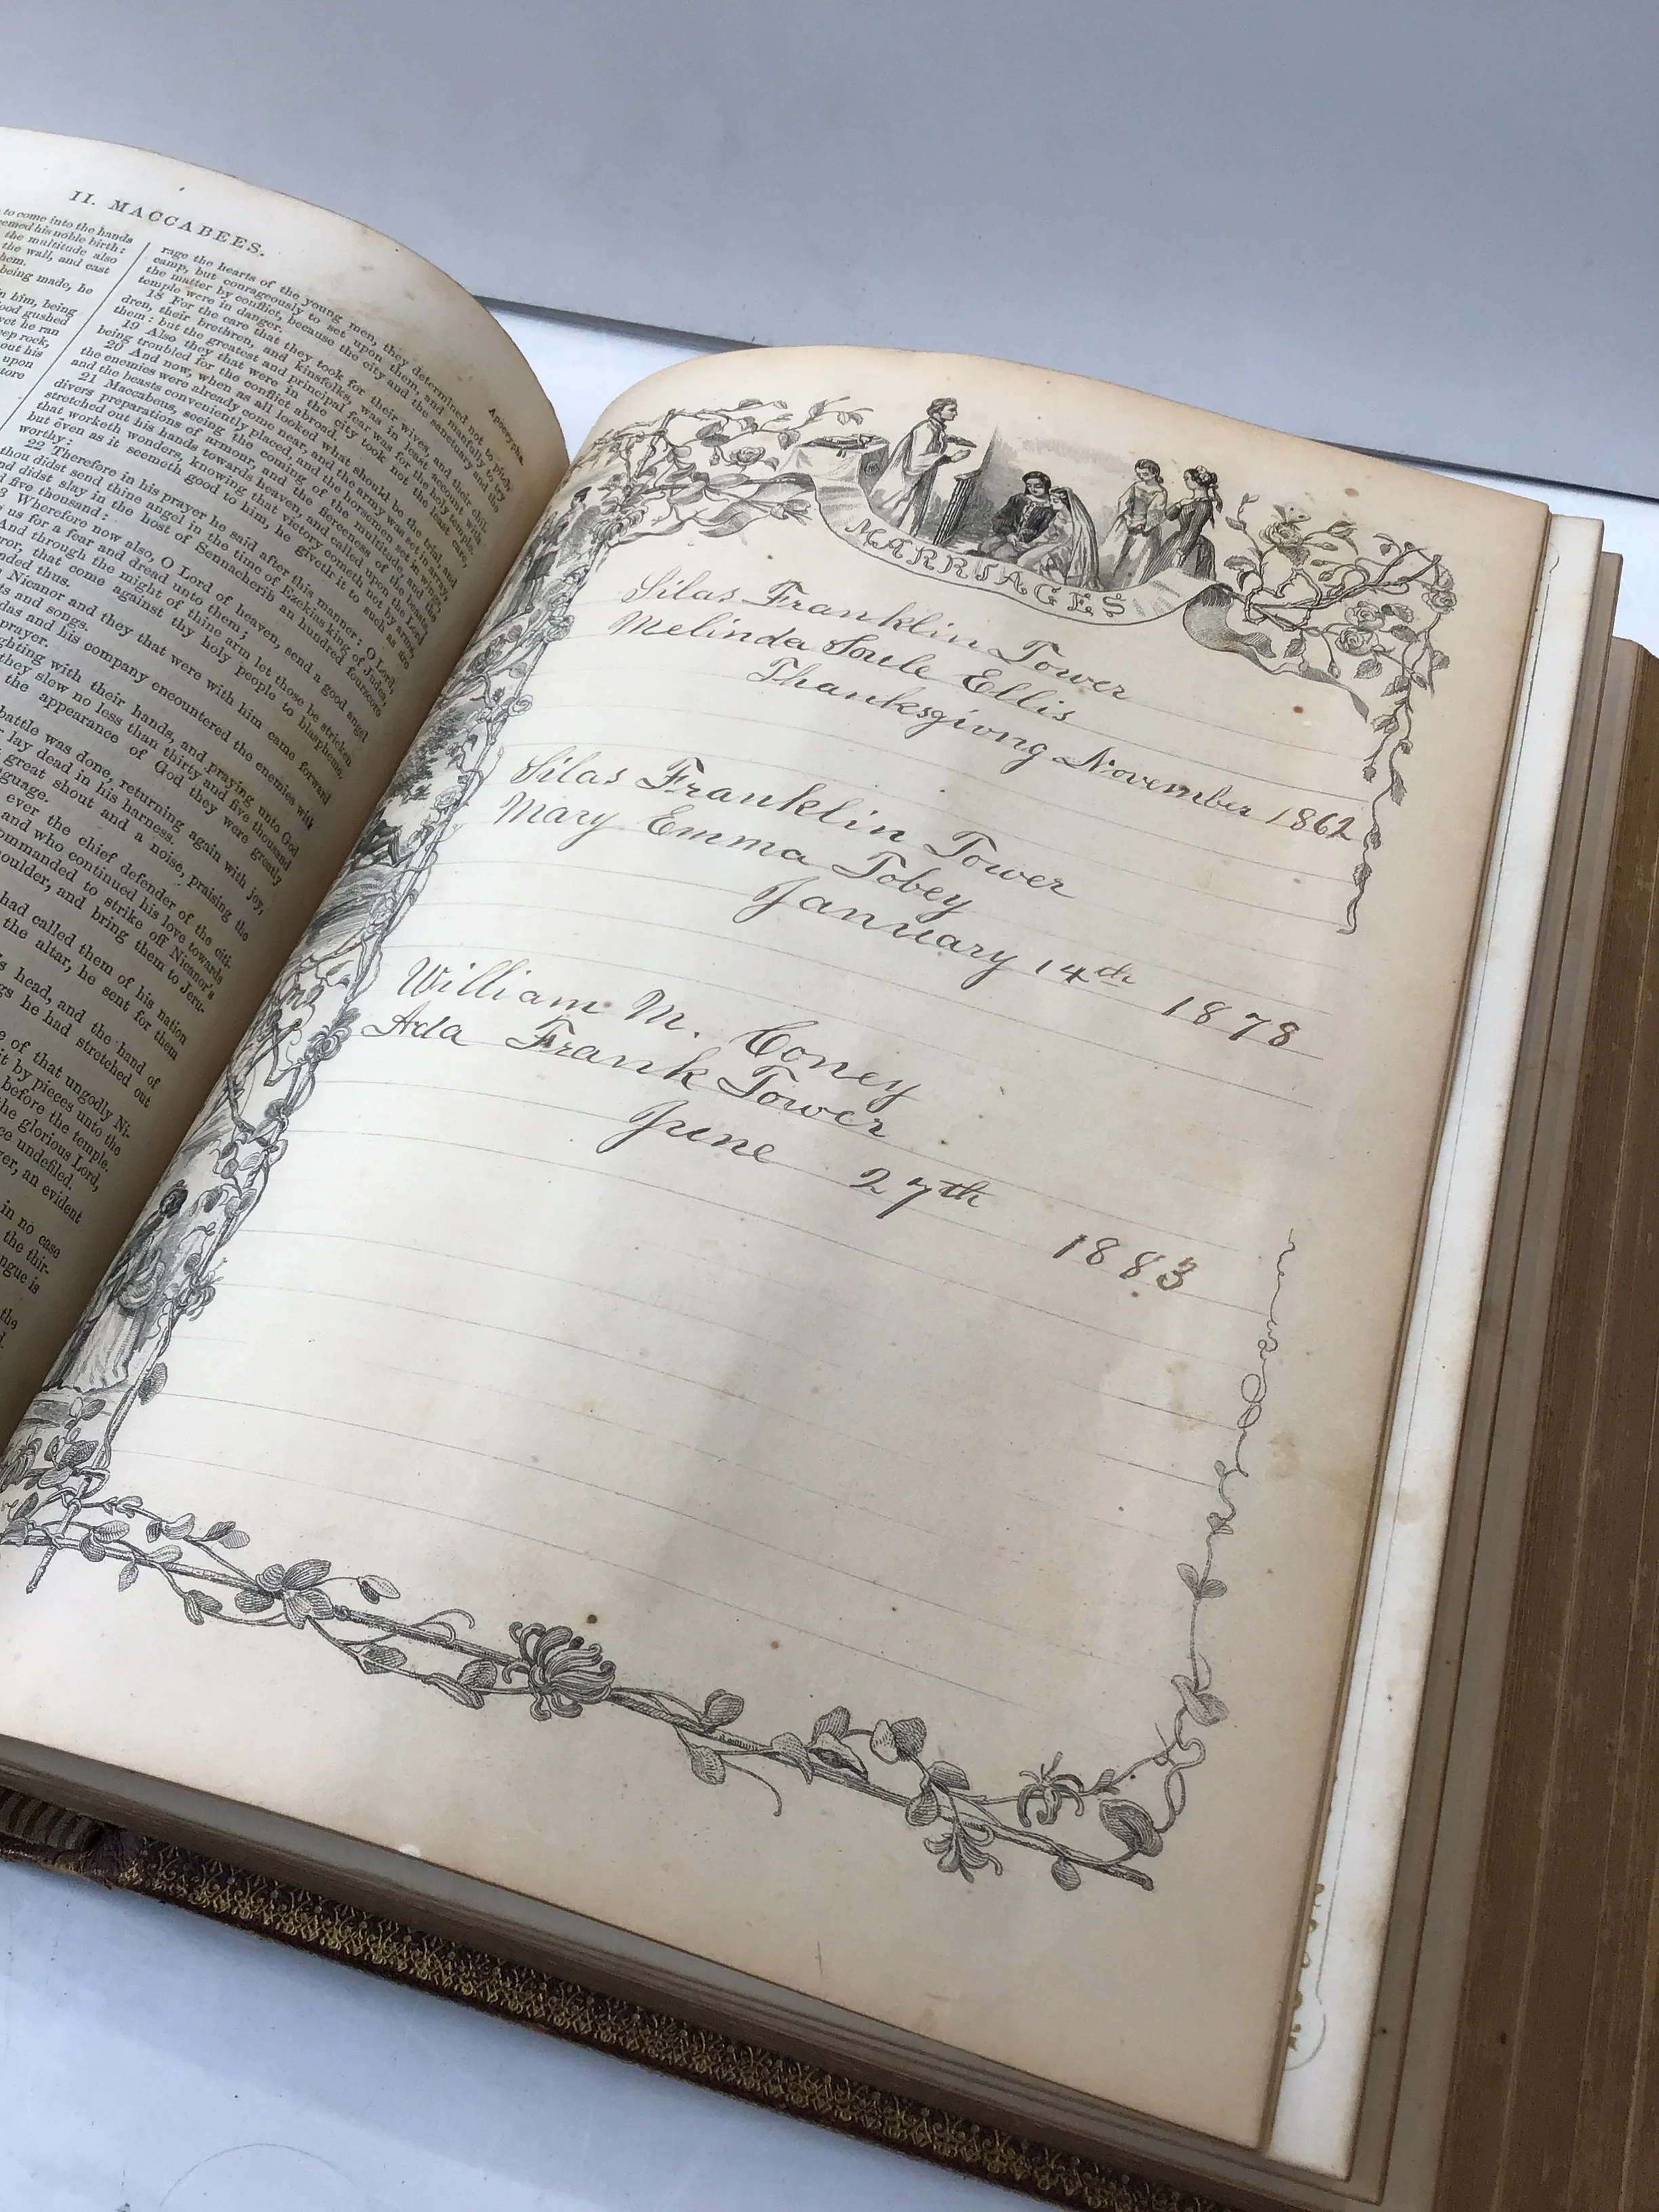 II. MACCABEES.
Apocrypha.
to come into the hands
the multitude also
the wall, and cast
being made, he
rage the hearts of the young men, they determined not to pitch
camp, but courageously to set upon them, and manfully to try
the matter by conflict, because the city and the sanctuary and the
temple were in danger.
18 For the care that they took for their wives, and their chil-
dren, their brethren, and kinsfolks, was in least account with
them: but the greatest and principal fear was for the holy temple.
19 Also they that were in the city took not the least care,
being troubled for the conflict abroad.
20 And now, when as all looked what should be the trial, and
the enemies were already come near, and the army was set in array,
and the beasts conveniently placed, and the horsemen set in wings,
21 Maccabeus, seeing the coming of the multitude, and the
divers preparations of armour, and the fierceness of the beasts,
stretched out his hands towards heaven, and called upon the Lord
that worketh wonders, knowing that victory cometh not by arms,
but even as it seemeth good to him, he giveth it to such as are
worthy:
22 Therefore in his prayer he said after this manner; O Lord,
thou didst send thine angel in the time of Ezekias king of Judea,
and didst slay in the host of Sennacherib an hundred fourscore
and five thousand:
Wherefore now also, O Lord of heaven, send a good angel
us for a fear and dread unto them;
And through the might of thine arm let those be stricken
that come against thy holy people to blaspheme.
ended thus.
Nicanor and they that were with him came forward
and songs.
and his company encountered the enemies with
prayer.
fighting with their hands, and praying unto God
they slew no less than thirty and five thousand
the appearance of God they were greatly
battle was done, returning again with joy,
lay dead in his harness.
great shout and a noise, praising the
language.
ever the chief defender of the citi-
and who continued his love towards
commanded to strike off Nicanor's
shoulder, and bring them to Jeru-
had called them of his nation
the altar, he sent for them
head, and the hand of
he had stretched out
of that ungodly Ni-
it by pieces unto the
before the temple.
the glorious Lord,
undefiled.
an evident
in no case
the thir-
MARRIAGES
Silas Franklin Tower
Melinda Soule Ellis
Thanksgiving November 1862
Silas Franklin Tower
Mary Emma Tobey
January 14th 1878
William M. Coney
Ada Frank Tower
June 27th 1883